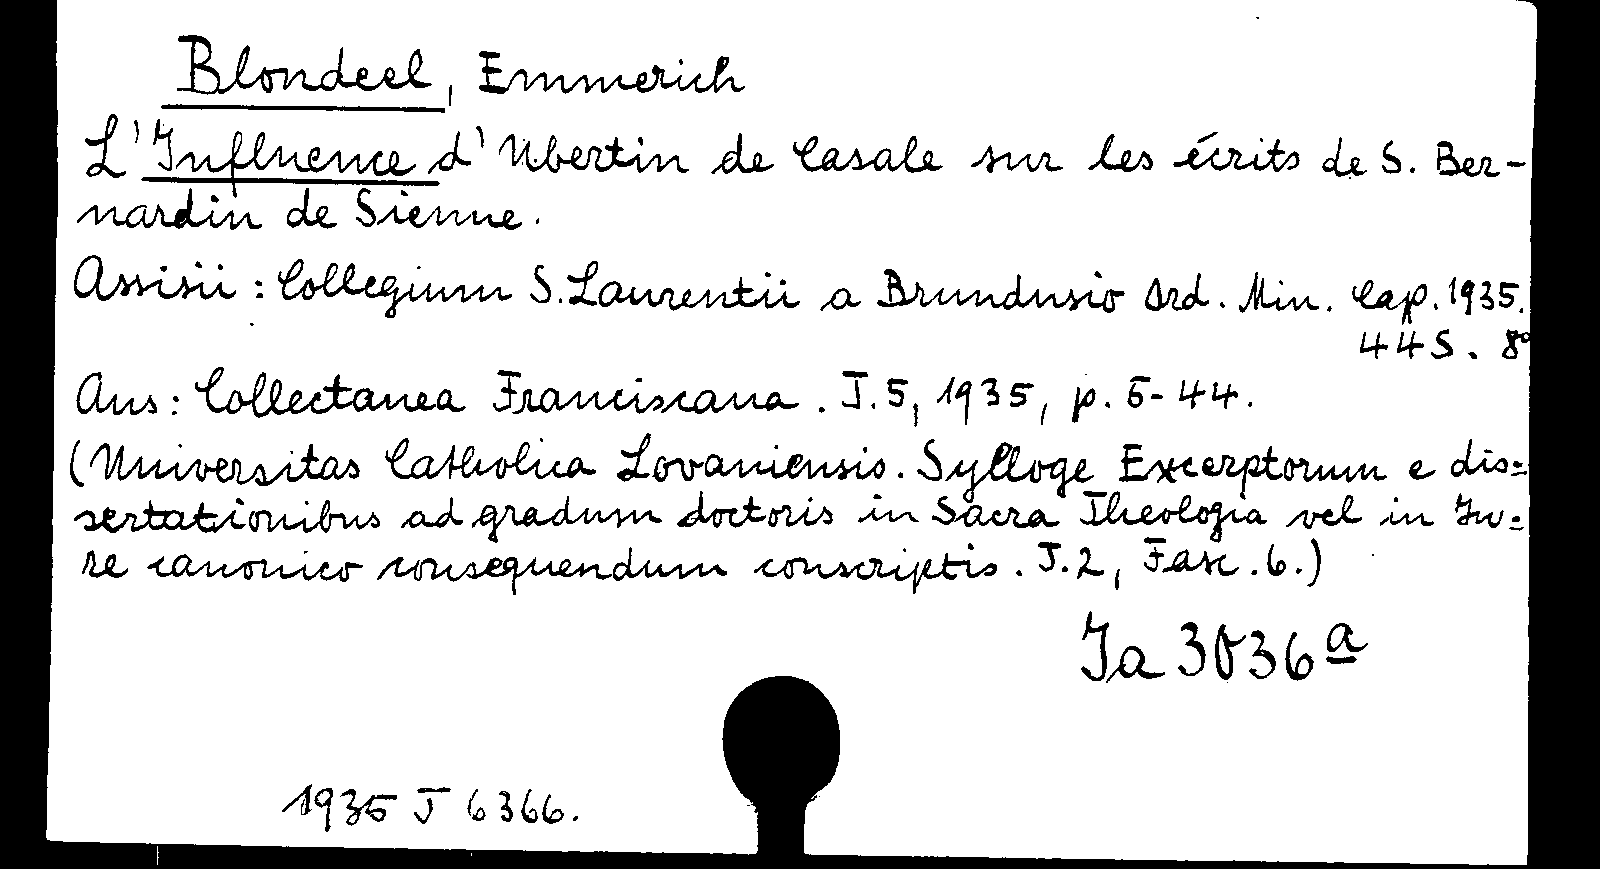 Blondeel, Emmerich
L'Influence d'Ubertin de Casale sur les écrits de S. Ber-
nardin de Sienne.
Assisii: Collegium S. Laurentii a Brundusio Ord. Min. Cap. 1935.
44 S. 8°
Aus: Collectanea Franciscana. T. 5, 1935, p. 5-44.
(Universitas Catholica Lovaniensis. Sylloge Excerptorum e dis=
sertationibus ad gradum doctoris in Sacra Theologia vel in Iu=
re canonico consequendum conscriptis. T. 2, Fasc. 6.)
Ja 3036 a
1935 J 6366.